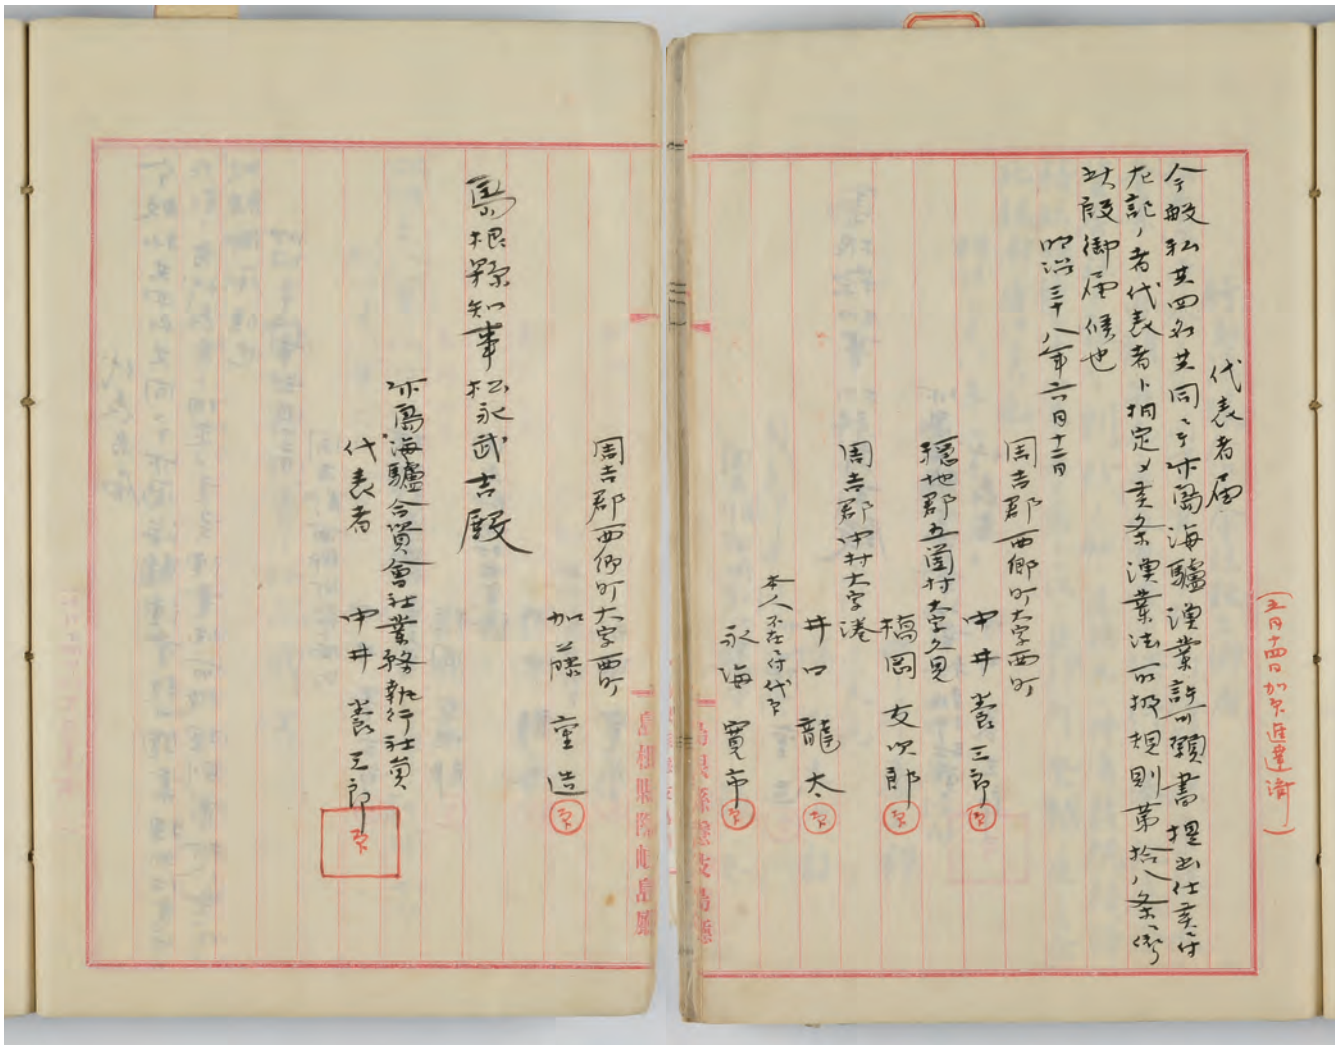 (五月十四日加印進達済)
代表者届
今般私共四名共同ニテ竹島海驢漁業許可願書提出仕候ニ付
左記ノ者代表者ト相定メ候条漁業法取扱規則第拾八条ニ依リ
此段御届候也
明治三十八年六月十三日
周吉郡西郷町大字西町
中井養三郎 印
穏地郡五箇村大字久見
橋岡友次郎 印
周吉郡中村大字湊
井口龍太 印
本人不在ニ付代印
永海寛市 印
島根縣隠岐島廳
周吉郡西郷町大字西町
加藤重造 印
島根縣知事松永武吉殿
竹島海驢合資會社業務執行社員
代表者 中井養三郎 印
島根縣隠岐島廳